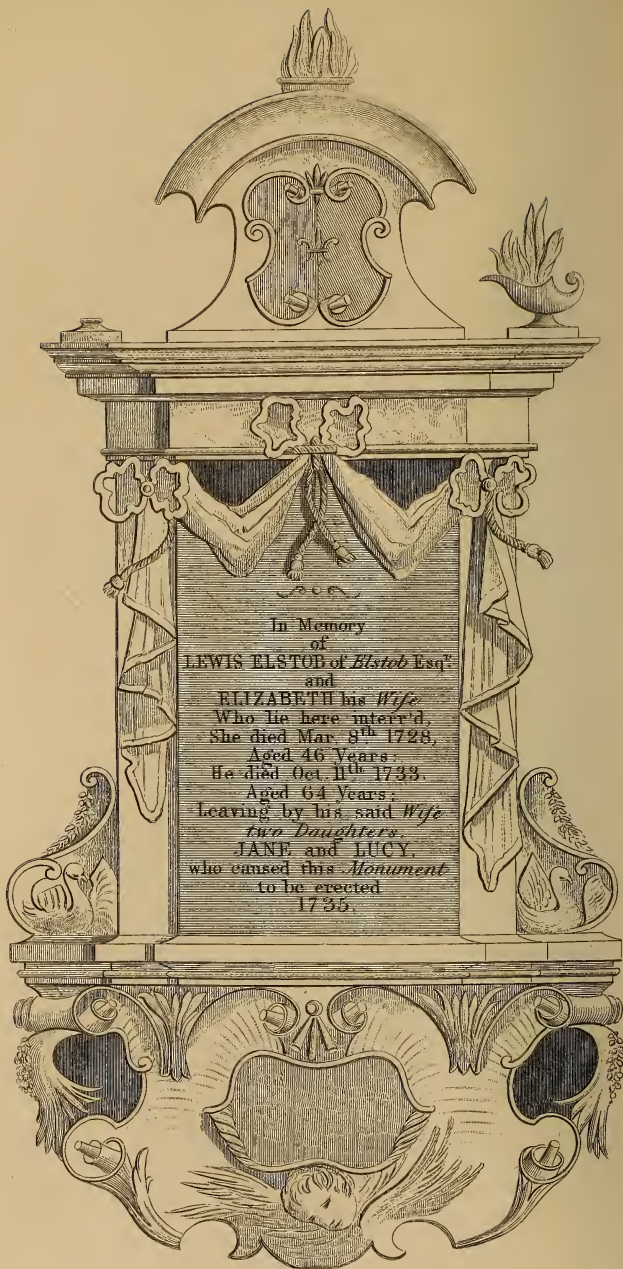 In Memory
of
LEWIS ELSTOB of Elstob Esqr.
and
ELIZABETH his Wife
Who lie here interr'd,
She died Mar. 8th 1728,
Aged 46 Years:
He died Oct. 11th 1733.
Aged 64 Years;
Leaving by his said Wife
two Daughters,
JANE and LUCY,
who caused this Monument
to be erected
1735.